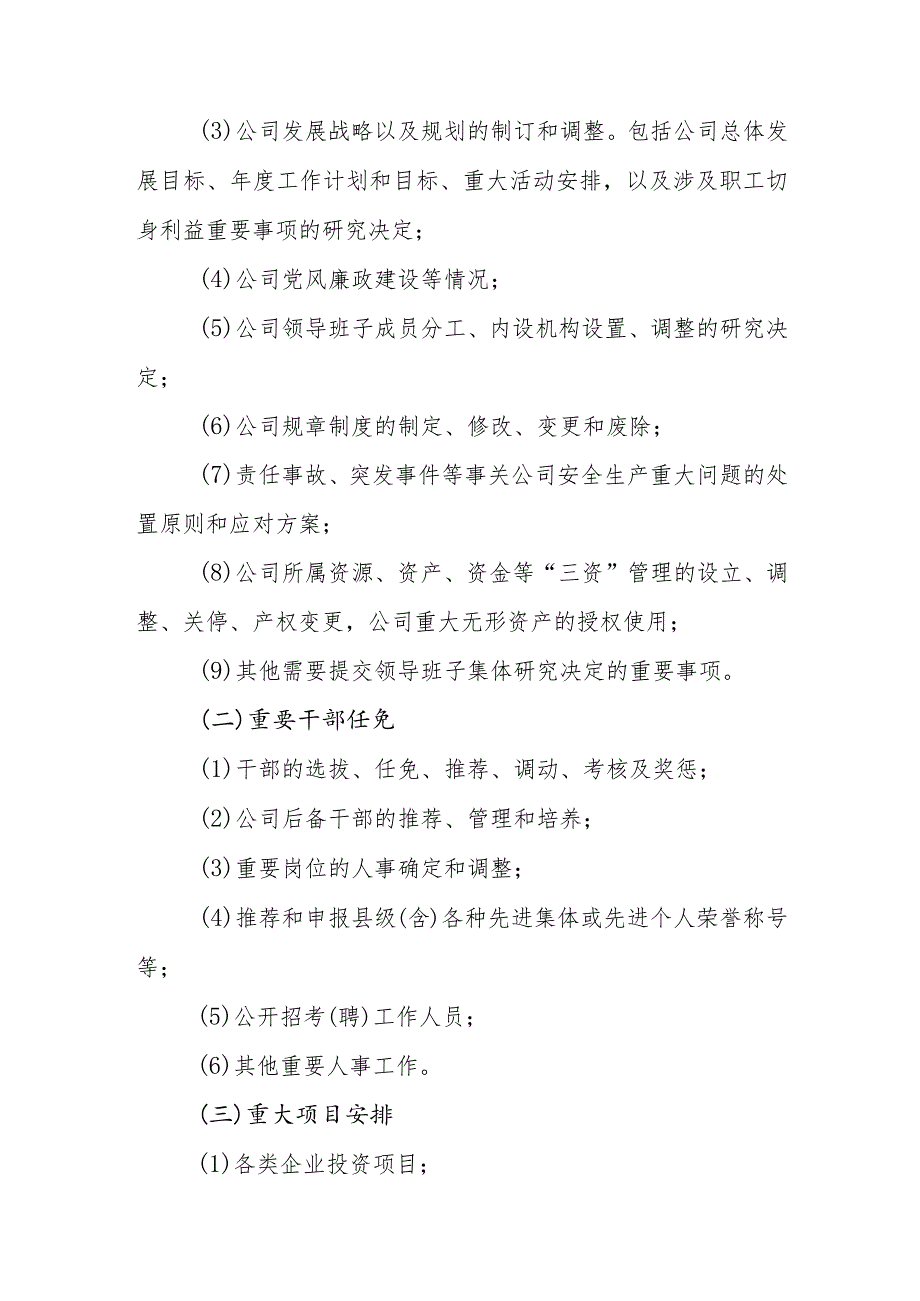 (3)公司发展战略以及规划的制订和调整。包括公司总体发
展目标、年度工作计划和目标、重大活动安排，以及涉及职工切
身利益重要事项的研究决定；
(4)公司党风廉政建设等情况；
(5)公司领导班子成员分工、内设机构设置、调整的研究决
定；
(6)公司规章制度的制定、修改、变更和废除；
(7)责任事故、突发事件等事关公司安全生产重大问题的处
置原则和应对方案；
(8)公司所属资源、资产、资金等“三资”管理的设立、调
整、关停、产权变更，公司重大无形资产的授权使用；
(9)其他需要提交领导班子集体研究决定的重要事项。
(二)重要干部任免
(1)干部的选拔、任免、推荐、调动、考核及奖惩；
(2)公司后备干部的推荐、管理和培养；
(3)重要岗位的人事确定和调整；
(4)推荐和申报县级(含)各种先进集体或先进个人荣誉称号
等；
(5)公开招考(聘)工作人员；
(6)其他重要人事工作。
(三)重大项目安排
(1)各类企业投资项目；